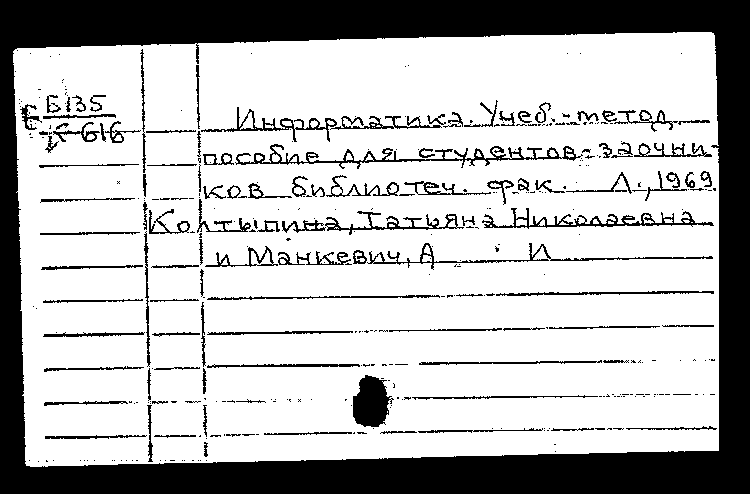 Б135
К 616
Информатика. Учеб.-метод.
пособие для студентов-заочни-
ков библиотеч. фак. Л., 1969
Колтыпина, Татьяна Николаевна
и Манкевич, А И